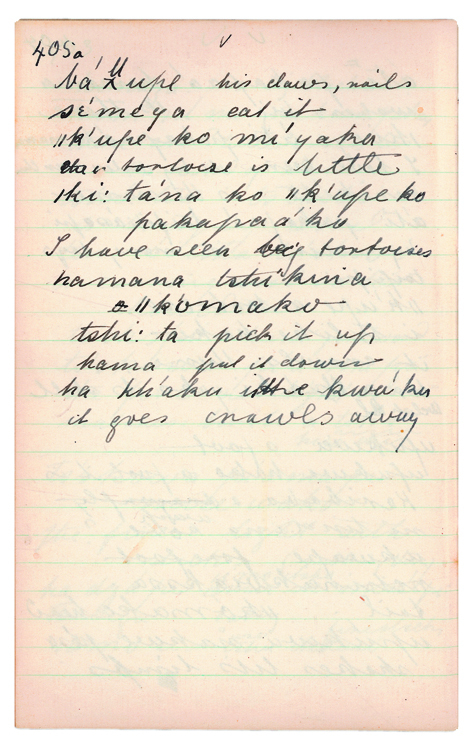 405a
bá ǁkupe his claws, nails
sé méya eat it
ǁk'upe ko mi'yaka
tortoise is little
ǀki: tána ko ǁk'upe ko
pakapaáko
I have seen big tortoises
namana tshikina
ǁkomako
tshi: ta pick it up
hama put it down
ha kwa'ku
it goes crawls away